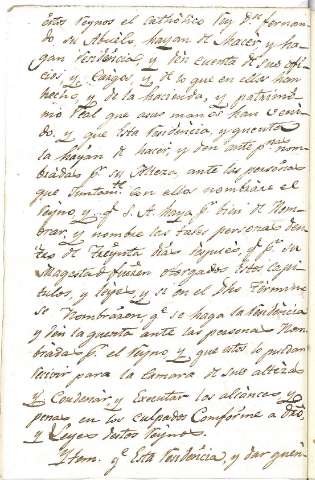 estos Reynos el catholico Rey Dn. fernando
su Abuelo, hayan de Hacer, y ha
gan Residencia, y den cuenta de sus ofi
cios y Cargos y de lo que en ellos han
hecho y de la hacienda, y patrimo
nio Real que asus manos han veni
do, y que esta residencia, y quenta
la hayan de hacer, y den ante pnas nom
bradas pr. su Alteza, ante las personas
que Juntamte. con ellas nombrare el
Reyno y qe. S. A. haya pr. bien de Nom
brar, y nombre las tales personas den
tro de treynta dias despues, qe. pr. su
Magestad fueren otorgados estos capi
tulos, y leyes y si en el dho termino
se Nombraren qe. se haga la residencia
y den la quenta ante las personas Nom
bradas pr. el Reyno y que estos lo puedan
recivir para la camara de sus altezas
y Condenar, y Executar los alcances y
penas en los culpados Comforme a dro,
y Leyes destos Reynos.
Ytem. qe. Esta residencia, y dar quen